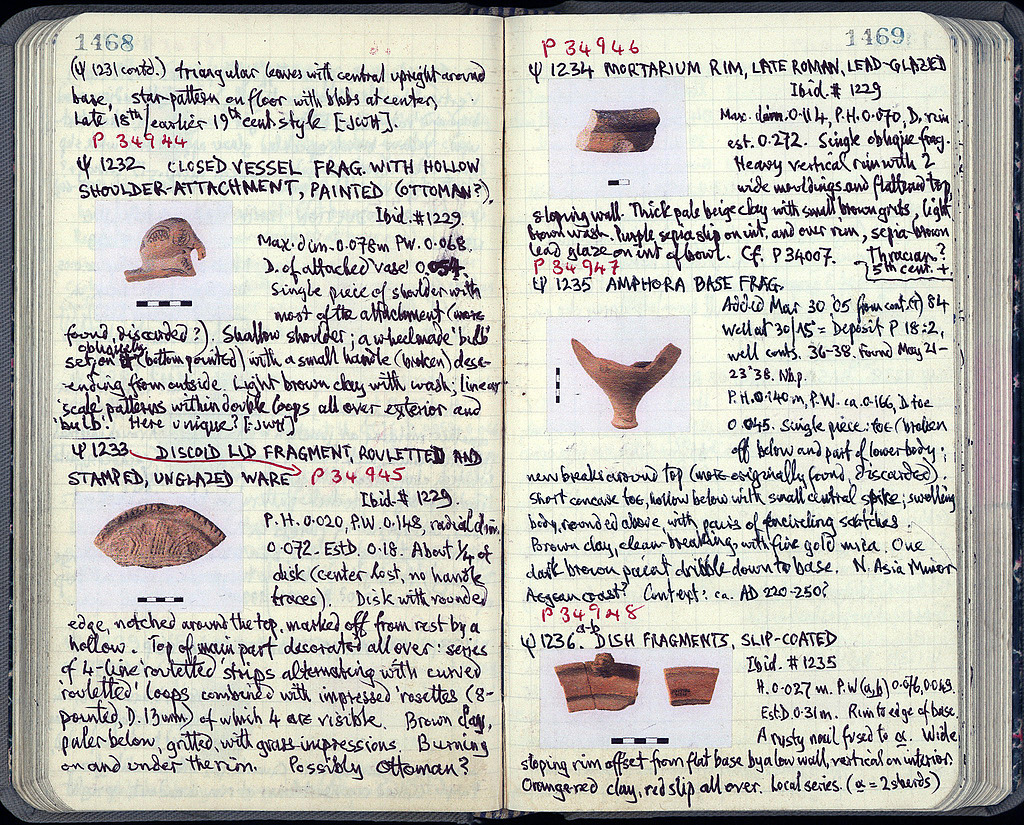 1468
(Ψ 1231 contd.) triangular leaves with central upright around
base, star-pattern on floor with blobs at center,
Late 18th/earlier 19th cent. style [-JWH].
P 34944
Ψ 1232 CLOSED VESSEL FRAG. WITH HOLLOW
SHOULDER-ATTACHMENT, PAINTED (OTTOMAN?),
Ibid. #1229
Max. dim. 0.078m P.W. 0.068.
D. of attached 'vase' 0.054.
Single piece of shoulder with
most of the attachment (more
found, discarded?). Shallow shoulder; a wheelmade 'bulb'
obliquely
set on (bottom pointed) with a small handle (broken) desc-
ending from outside. Light brown clay with wash; linear
'scale' patterns within double loops all over exterior and
'bulb'. Here unique? [-JWH]
Ψ 1233 DISCOID LID FRAGMENT, ROULETTED AND
STAMPED, UNGLAZED WARE P 34945
Ibid. # 1229.
P.H. 0.020, P.W. 0.148, radial dim.
0.072. Est D. 0.18. About 1/4 of
disk (center lost, no handle
traces). Disk with rounded
edge, notched around the top, marked off from rest by a
hollow. Top of main part decorated all over: series
of 4-line 'rouletted' strips alternating with curved
'rouletted' loops combined with impressed 'rosettes' (8-
pointed, D. 13mm) of which 4 are visible. Brown clay,
paler below, gritted, with grass impressions. Burning
on and under the rim. Possibly Ottoman?
1469
P 34946
Ψ 1234 MORTARIUM RIM, LATE ROMAN, LEAD-GLAZED
Ibid. # 1229
Max. dim. 0.114, P.H. 0.070, D. rim
est. 0.272. Single oblique frag.
Heavy vertical rim with 2
wide mouldings and flattened top,
sloping wall. Thick pale beige clay with small brown grits, light
brown wash. Purple sepia slip on int. and over rim, sepia-brown
lead glaze on int of bowl. Cf. P 34007. Thracian?
5th cent. +
P 34947
Ψ 1235 AMPHORA BASE FRAG.
Added Mar 30 '05 (from cont.(t) 84
Well at 30/ΛΣ = Deposit P 18:2,
well conts. 36-38. Found May 21-
23 '38. Nbp.
P.H. 0.140 m, P.W. ca. 0.166, D. toe
0.045. Single piece: toe (broken
off below and part of lower body;
new breaks around top (more originally found, discarded).
Short concave toe, hollow below with small central spike; swelling
body, rounded above, with pairs of encircling scratches.
Brown clay, clean-breaking, with fine gold mica. One
dark brown paint dribble down to base. N. Asia Minor
Aegean coast? Context: ca. AD 220-250?
P 34948
Ψ 1236 a-b DISH FRAGMENTS, SLIP-COATED
Ibid. #1235
H. 0.027 m. P.W (a,b) 0.076, 0.069.
Est D. 0.31m. Rim to edge of base.
A rusty nail fused to a. Wide
sloping rim offset from flat base by a low wall, vertical on interior.
Orange-red clay, red slip all over. Local series. (a = 2 sherds)